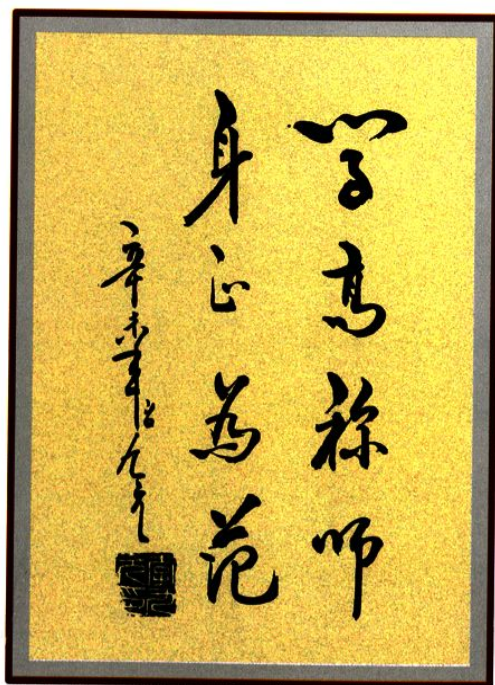 学高称师
身正为范
辛未年